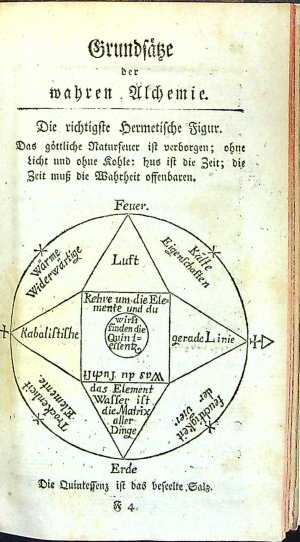 Grundsätze
der
wahren Alchemie.
Die richtigste Hermetische Figur.
Das göttliche Naturfeuer ist verborgen; ohne
Licht und ohne Kohle: hus ist die Zeit; die
Zeit muß die Wahrheit offenbaren.
Feuer.
Wärme
Widerwärtige
Luft
Kälte
Eigenschaften
Kehre um die Ele-
mente und du
wirst
finden die
Quint-
essentz,
Was du suchst
Kabalistische
gerade Linie
Trockenheit
Elemente.
das Element
Wasser ist
die Matrix
aller
Dinge
feuchtigkeit
der vier
Erde
Die Quintessenz ist das beseelte Salz.
F 4